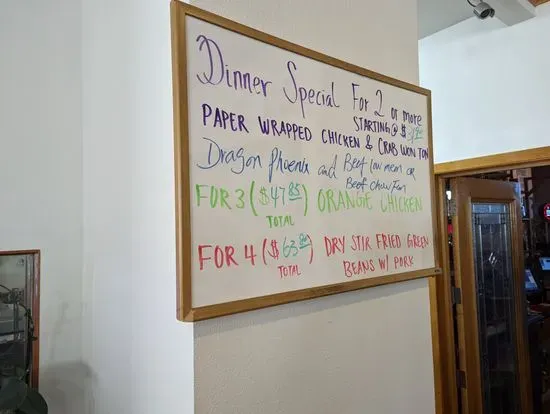 Dinner Special For 2 or more
STARTING @ $
PAPER WRAPPED CHICKEN & CRAB WON TON
Dragon Phoenix and Beef low mein or
Beef chow Fun
FOR 3 ($47.85) ORANGE CHICKEN
TOTAL
FOR 4 ($63.80) DRY STIR FRIED GREEN
TOTAL BEANS W/ PORK